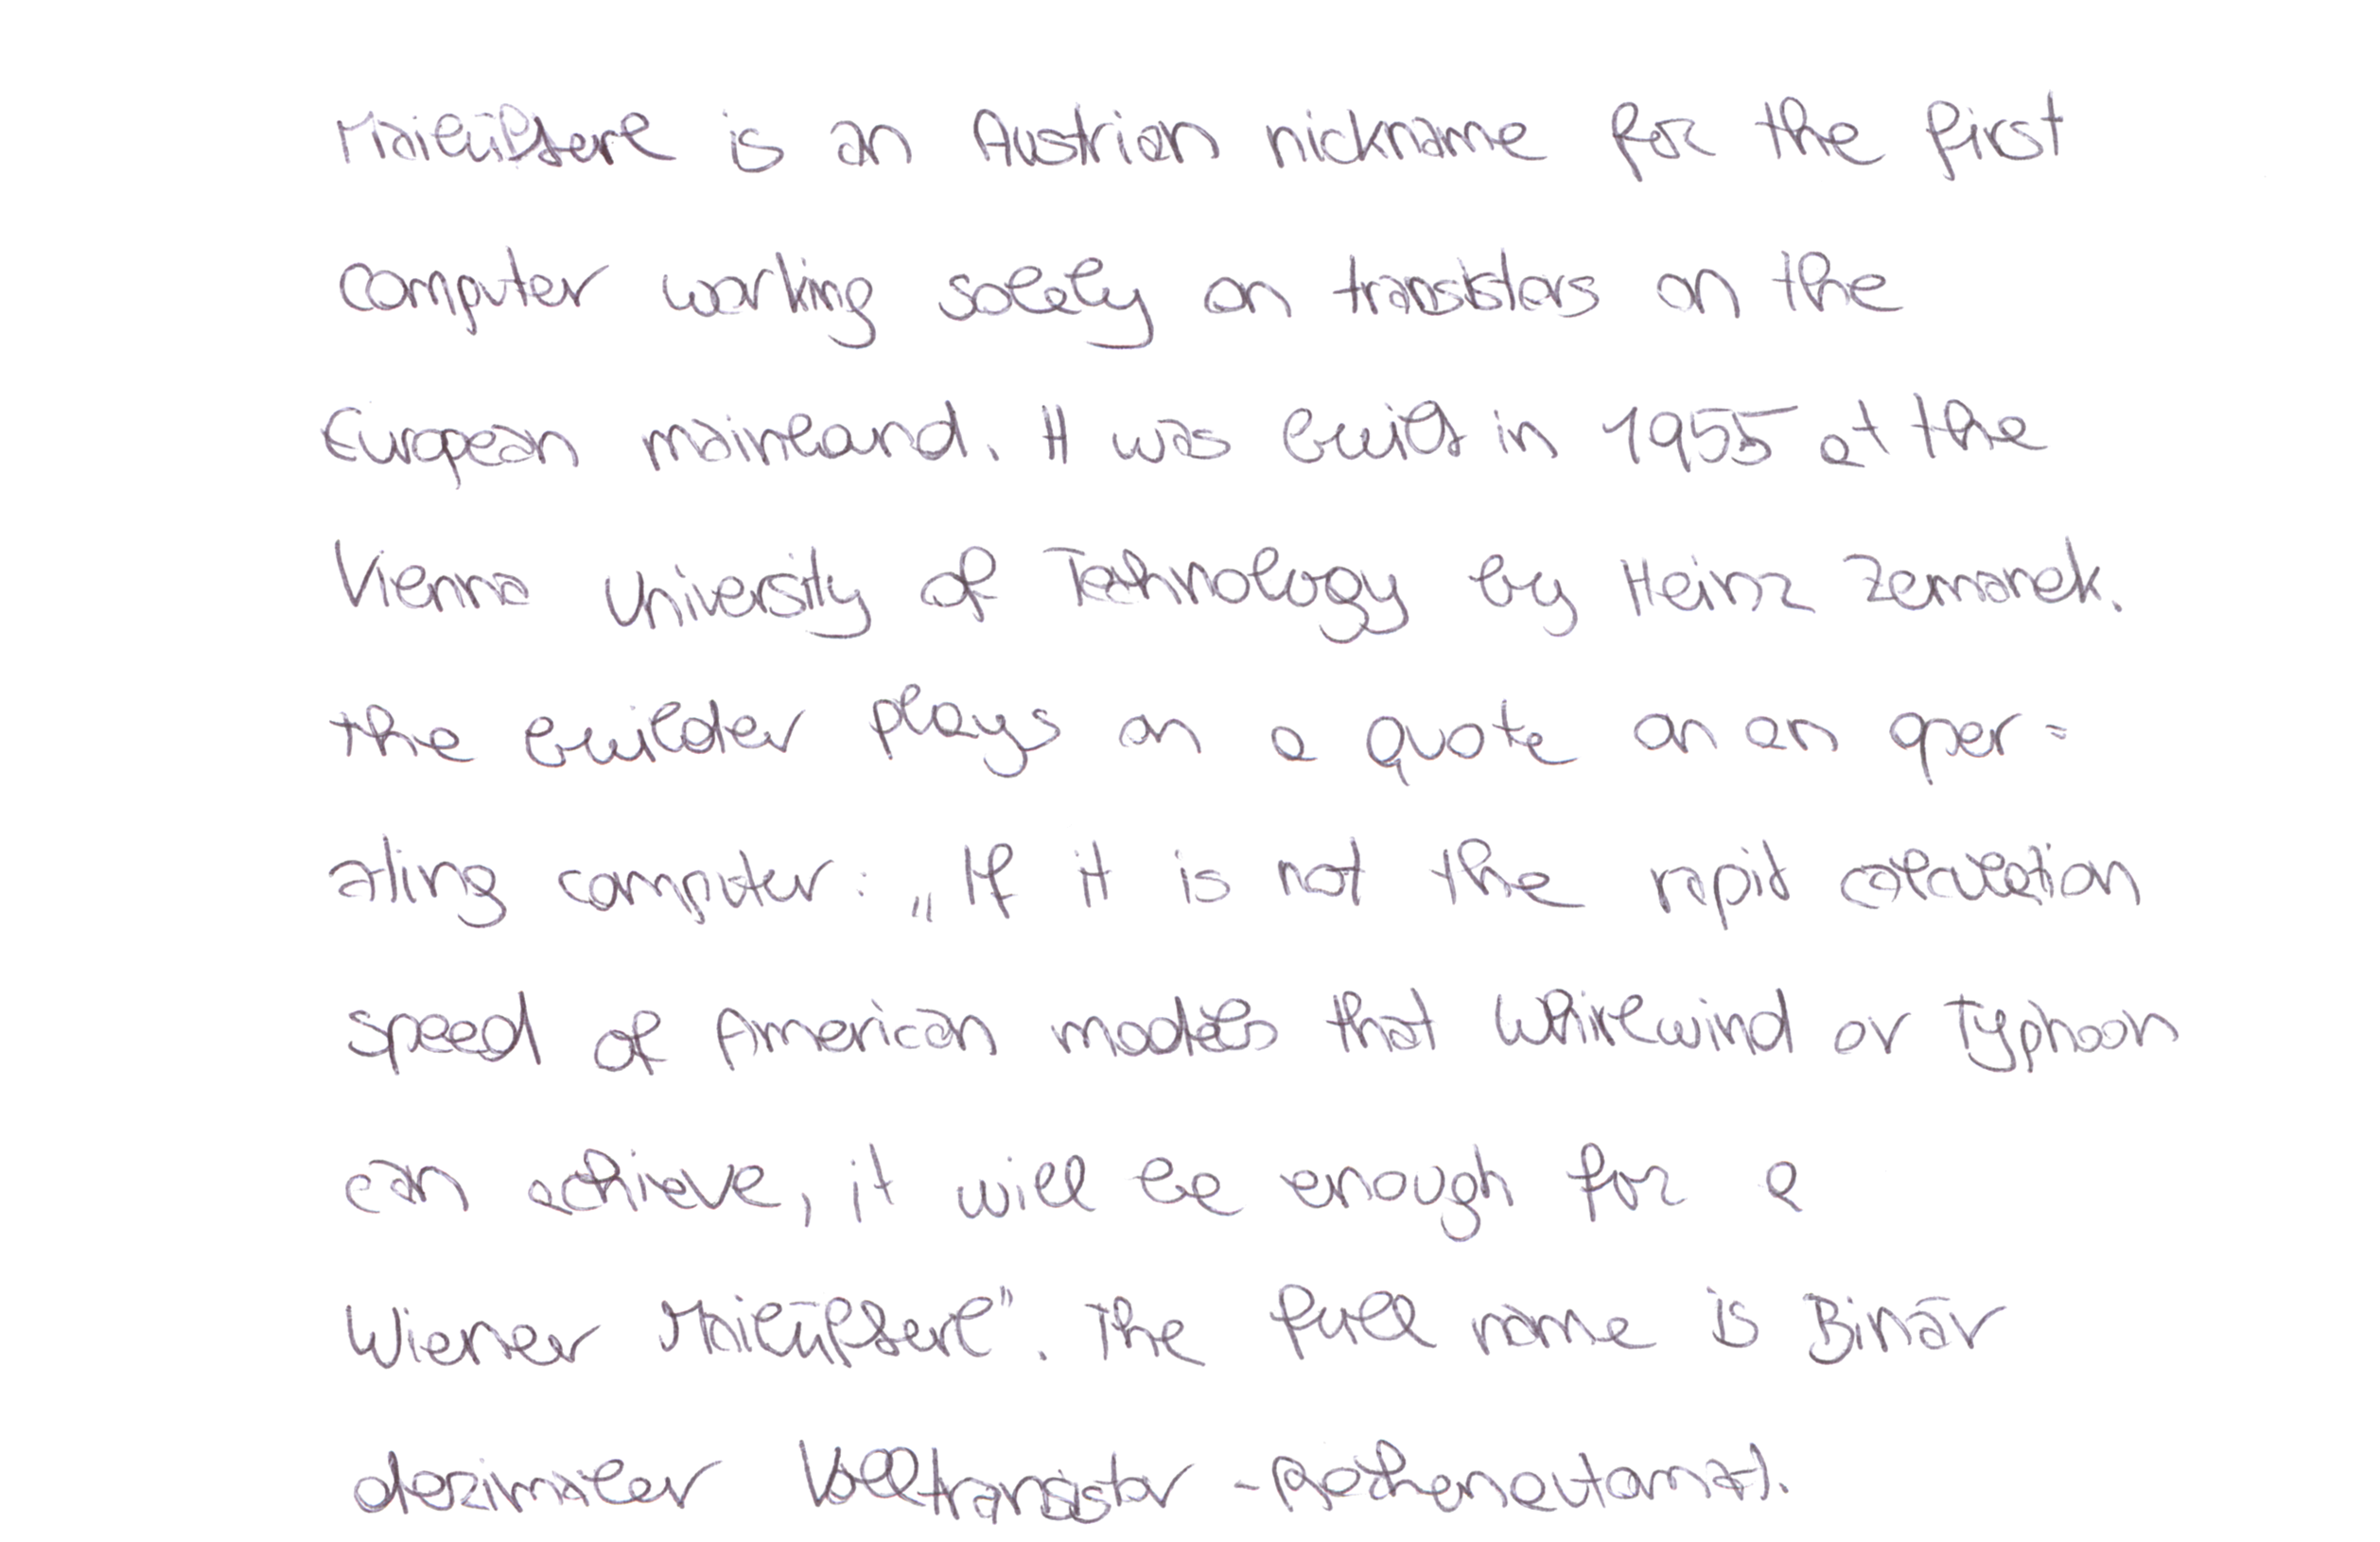 Mailüfterl is an Austrian nickname for the first
computer working solely on transistors on the
European mainland. It was built in 1955 at the
Vienna University of Technology by Heinz Zemanek.
The builder plays on a quote on an oper=
ating computer: „If it is not the rapid calculation
speed of American models that Whirlwind or Typhoon
can achieve, it will be enough for a
Wiener Mailüfterl". The full name is Binär
dezimaler Volltransistor-Rechenautomat).